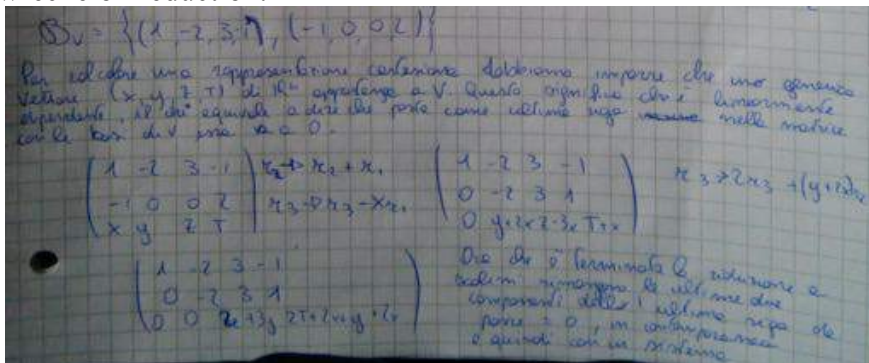 Bv = {(1, -2, 3, -1), (-1, 0, 0, 2)}
Per calcolare una rappresentazione cartesiana dobbiamo imporre che uno generico
vettore (x, y, z, T) di appartenga a V. Questo significa che è linearmente
dipendente, il che equivale a dire che posta come ultima riga nella matrice
con le basi di V sia a 0.
( 1 -2 3 -1 ) r2 → r2 + r1 ( 1 -2 3 -1 ) r3 → 2r3 + (y+2x)r2
( -1 0 0 2 ) r3 → r3 - xr1 ( 0 -2 3 1 )
( x y z T ) ( 0 y+2x z-3x T+x )
( 1 -2 3 -1 ) Ora che è terminata la riduzione a
( 0 -2 3 1 ) scalini rimangono le ultime due
( 0 0 2z+3y 2T+2x+y+2x ) componenti dell'ultima riga da
porre = 0, in contemporanea
e quindi con un sistema